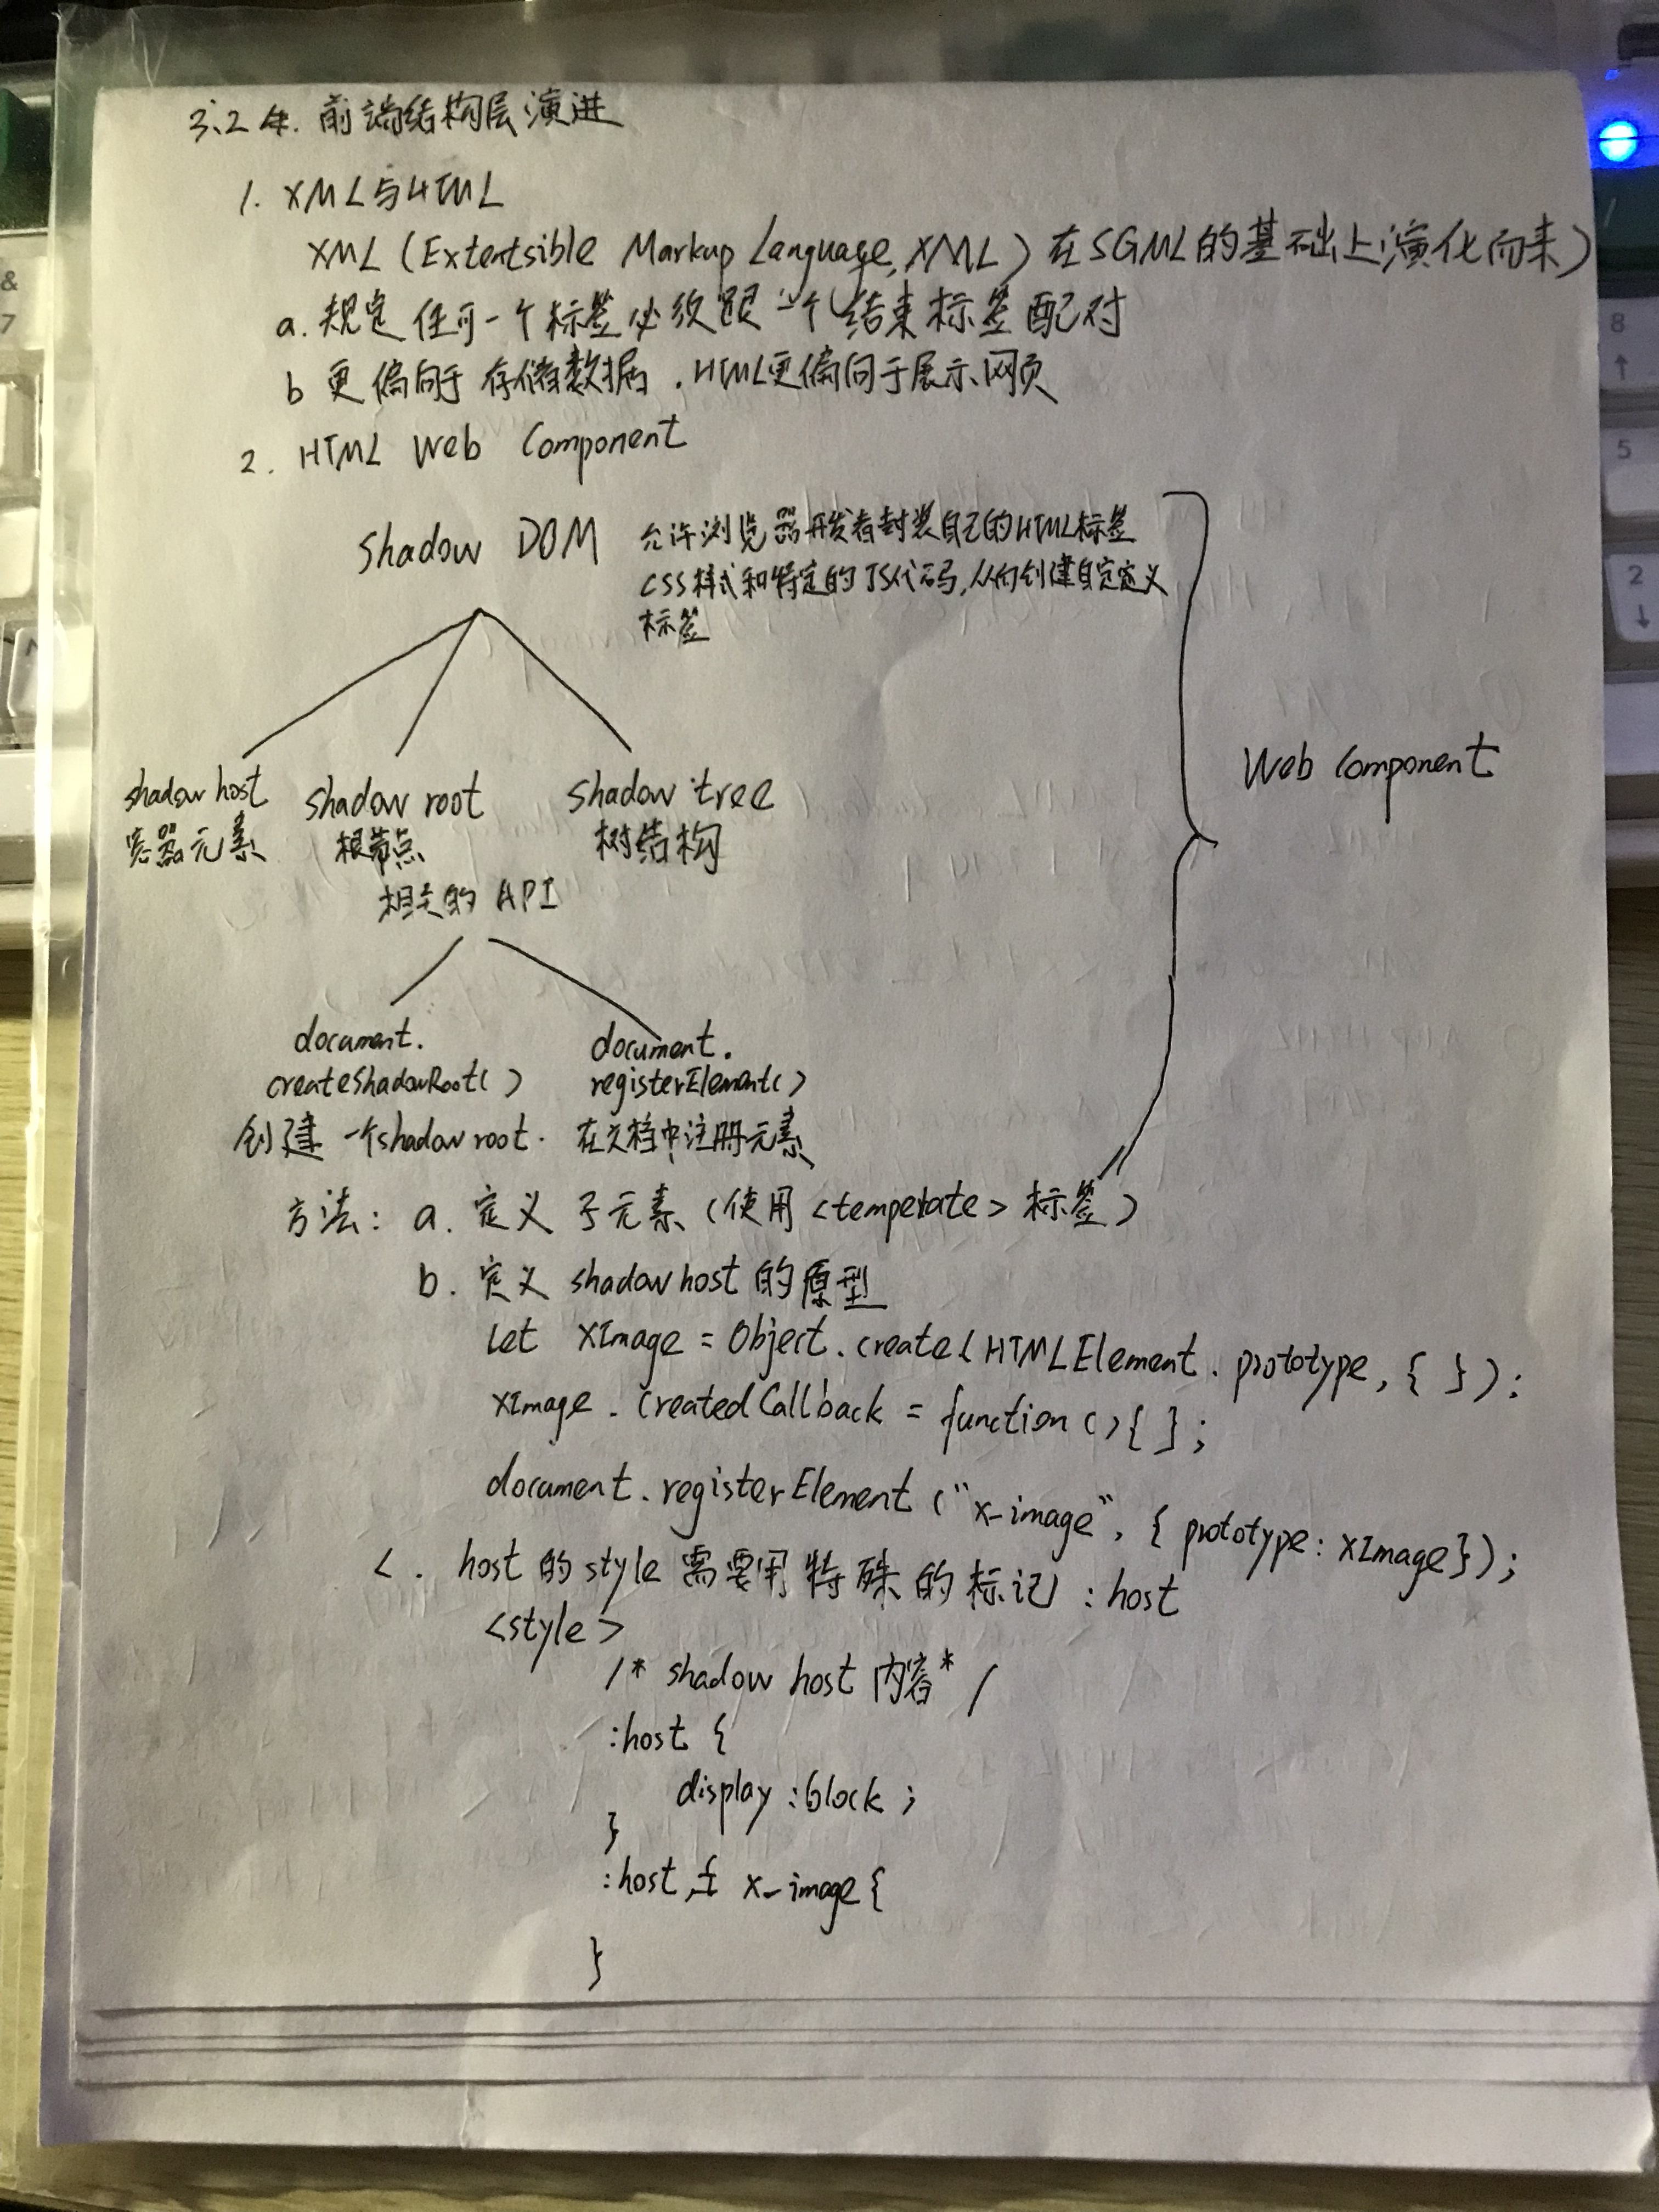 3.2.4. 前端结构层演进
1. XML与HTML
XML (Extentsible Markup Language, XML) 在SGML的基础上演化而来)
a. 规定任何一个标签必须跟一个结束标签配对
b 更偏向于存储数据. HTML更偏向于展示网页
2. HTML Web Component
shadow DOM
允许浏览器开发者封装自己的HTML标签
CSS样式和特定的JS代码,从而创建自定定义
标签
Web Component
shadow host shadow root shadow tree
容器元素 根节点 树结构
相关的 API
document. document.
createShadowRoot() registerElement()
创建一个shadow root. 在文档中注册元素
方法: a. 定义子元素 (使用 <temperate> 标签)
b. 定义 shadow host 的原型
let XImage = Object.create(HTMLElement.prototype, { });
xImage.createdCallback = function () { };
document.registerElement ("x-image", { prototype: XImage});
c. host 的 style 需要用特殊的标记 :host
<style>
/* shadow host 内容 */
:host {
display :block ;
}
:host, x-image {
}
8
5
2
&
7